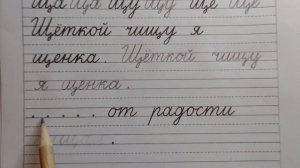 ща ща щу щу ще ще
Щёткой чищу я
щенка. Щёткой чищу
я щенка.
. . . . . от радости
.